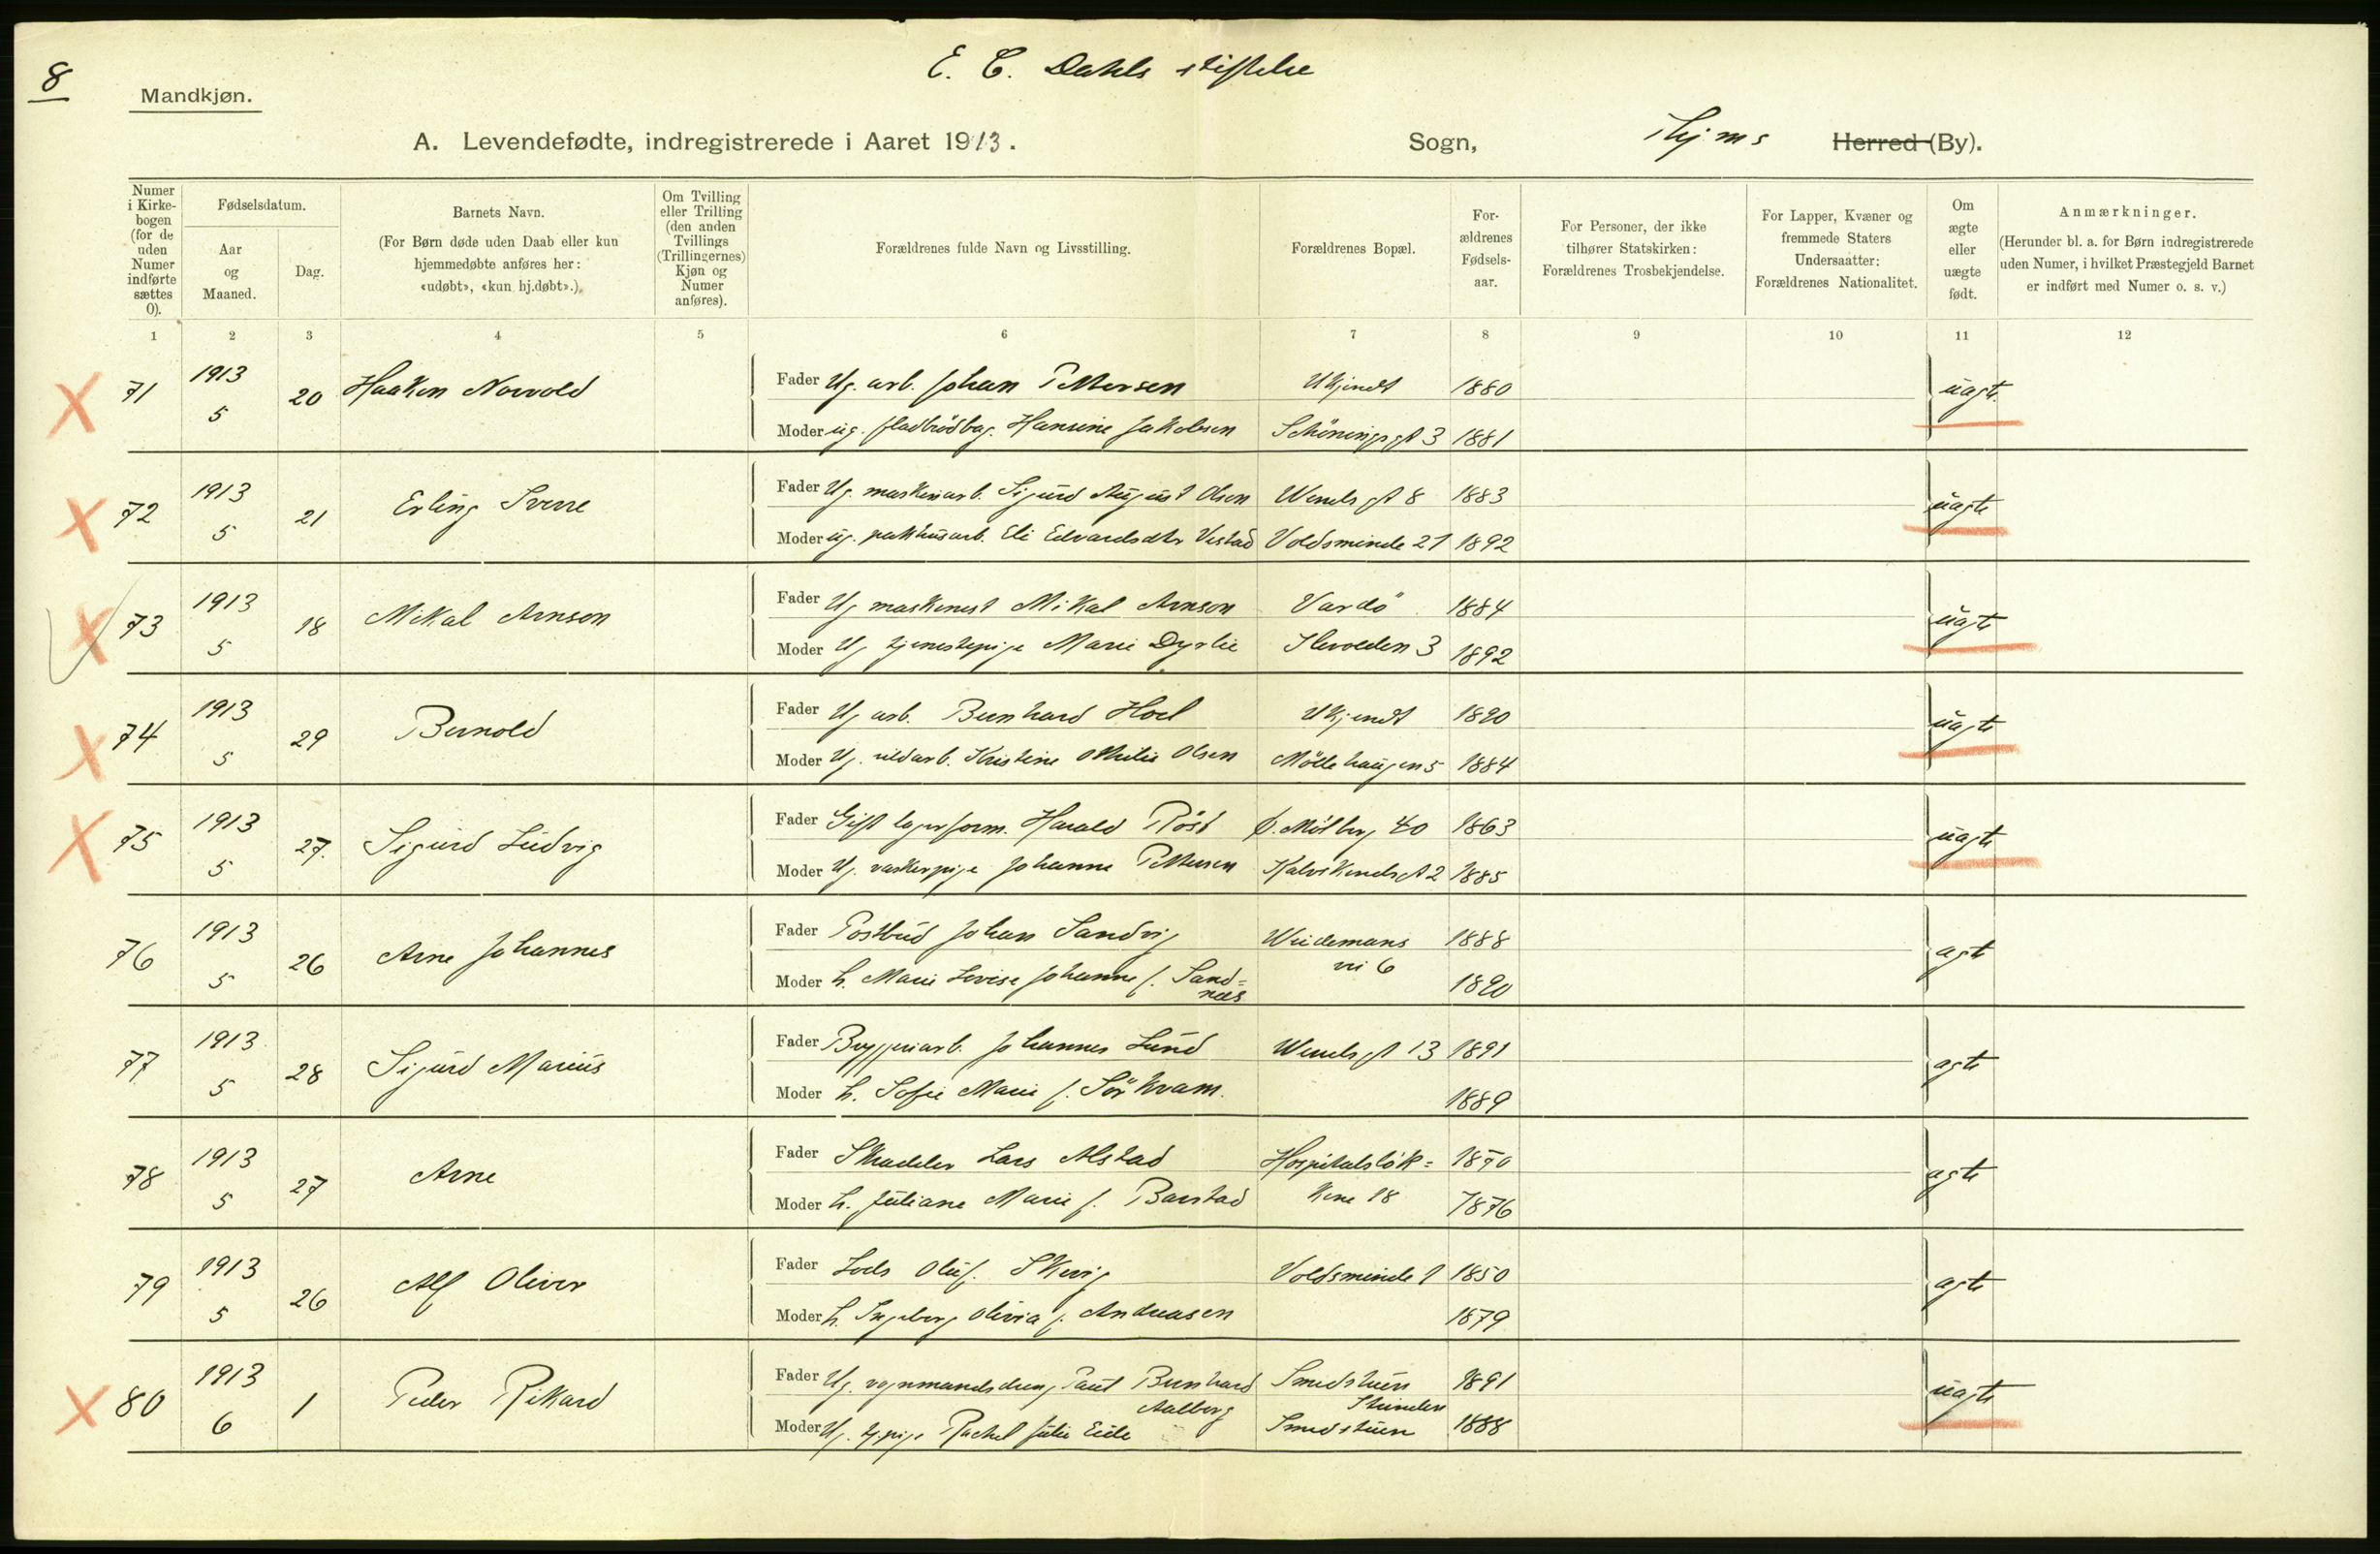 8
E. C. Dahls stiftelse
Mandkjøn.
A. Levendefødte, indregistrerede i Aaret 1913. Sogn, Thjms Herred (By).
Numer i Kirkebogen (for de uden Numer indførte sættes 0).
Fødselsdatum.
Aar og Maaned.
Dag.
Barnets Navn.
(For Børn døde uden Daab eller kun hjemmedøbte anføres her: «udøbt», «kun hj.døbt».)
Om Tvilling eller Trilling (den anden Tvillings (Trillingernes) Kjøn og Numer anføres).
Forældrenes fulde Navn og Livsstilling.
Forældrenes Bopæl.
Forældrenes Fødselsaar.
For Personer, der ikke tilhører Statskirken: Forældrenes Trosbekjendelse.
For Lapper, Kvæner og fremmede Staters Undersaatter: Forældrenes Nationalitet.
Om ægte eller uægte født.
Anmærkninger.
(Herunder bl. a. for Børn indregistrerede uden Numer, i hvilket Præstegjeld Barnet er indført med Numer o. s. v.)
1 2 3 4 5 6 7 8 9 10 11 12
71 1913 5 20 Haakon Norvold
Fader Ug. arb. Johan Pettersen Ukjendt 1880 uagte
Moder ug. fladbrödbag. Hansine Jakobsen Schöningsgt 3 1881
72 1913 5 21 Erling Sverre
Fader Ug. maskinarb. Sigurd August Olsen Wessels gt 8 1883 uagte
Moder ug. pakhusarb. Eli Edvardsdtr Vestad Voldsminde 21 1892
73 1913 5 18 Mikal Arnson
Fader Ug maskinist Mikal Arnson Vardö 1884 uagte
Moder Ug tjenestepige Marie Dyrlie Ilevolden 3 1892
74 1913 5 29 Bernold
Fader Ug arb. Bernhard Hoel Ukjendt 1890 uagte
Moder Ug. uldarb. Kristine Othilie Olsen Möllehaugen 5 1884
75 1913 5 27. Sigurd Ludvig
Fader Gift lagerform. Harald Röst Ö. Möllbg 40 1863 uagte
Moder Ug. vaskerpige Johanne Pettersen Kalvskindsgt 2 1885
76 1913 5 26 Arne Johannes
Fader Postbud Johan Sandvig Weidemans 1888 agte
vei 6
Moder h. Marie Lovise Johanne f. Sand= 1890
næs
77 1913 5 28 Sigurd Marius
Fader Bryggeriarb. Johannes Lund Wessels gt 13 1891 agte
Moder h. Sofie Marie f. Sörkvam. 1889
78 1913 5 27 Arne
Fader Skrædder Lars Alstad Hospitalslök= 1870 agte
Moder h. Juliane Marie f. Barstad kene 18 1876
79 1913 5 26 Alf Oliver
Fader Lods Oluf. Skevig Voldsminde 1 1850 agte
Moder h. Ingeborg Olivia f. Andreasen 1879
80 1913 6 1 Peder Rikard
Fader Ug. vognmandsdreng Paul Bernhard Smedstuen 1891 uagte
Aalberg Strinden
Moder Ug. tj.pige Rachel Julie Eide Smedstuen 1888